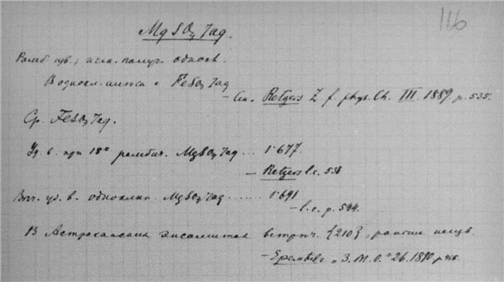 116
MgSO₄ 7aq.
Ромб. цв.; иск. получ. однокл.
В однокл. смеси с FeSO₄ 7aq
— См. Retgers Z. f. phys. Ch. III. 1889. p. 535.
Ср. FeSO₄ 7aq.
Уд. в. при 18° ромбич. MgSO₄ 7aq .... 1.677.
— Retgers l. c. 538
Выч. уд. в. однокл. MgSO₄ 7aq ...... 1.691
— l. c. p. 544.
В Астраханских эпсомитах встреч. {210}, раньше неизв.
— Еремеев „З. М. О." 26. 1890. p.